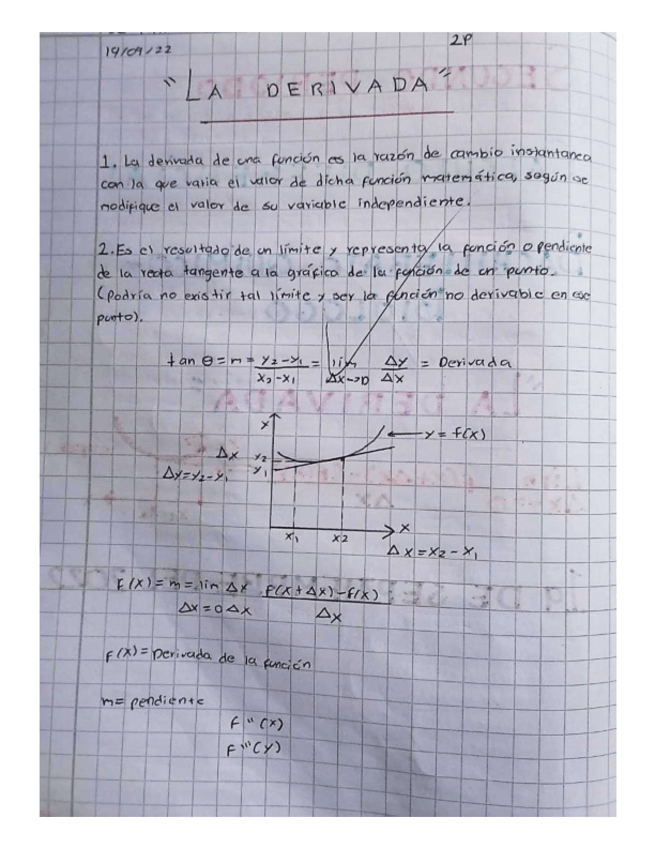 19/09/22
2P
"LA DERIVADA"
1. La derivada de una función es la razón de cambio instantanea
con la que varia el valor de dicha función matemática, según se
modifique el valor de su variable independiente.
2. Es el resultado de un límite y representa la función o pendiente
de la recta tangente a la gráfica de la función de un punto.
(podría no existir tal límite y ser la función no derivable en ese
punto).
tan θ = m = y₂-y₁/x₂-x₁ = lim Δx→0 Δy/Δx = Derivada
y
y = f(x)
Δx y₂
Δy=y₂-y₁ y₁
x₁ x2 x
Δx = x₂ - x₁
f(x) = m = lim Δx f(x+Δx)-f(x)
Δx=0 Δx Δx
f(x) = Derivada de la función
m= pendiente
f"(x)
f'''(y)